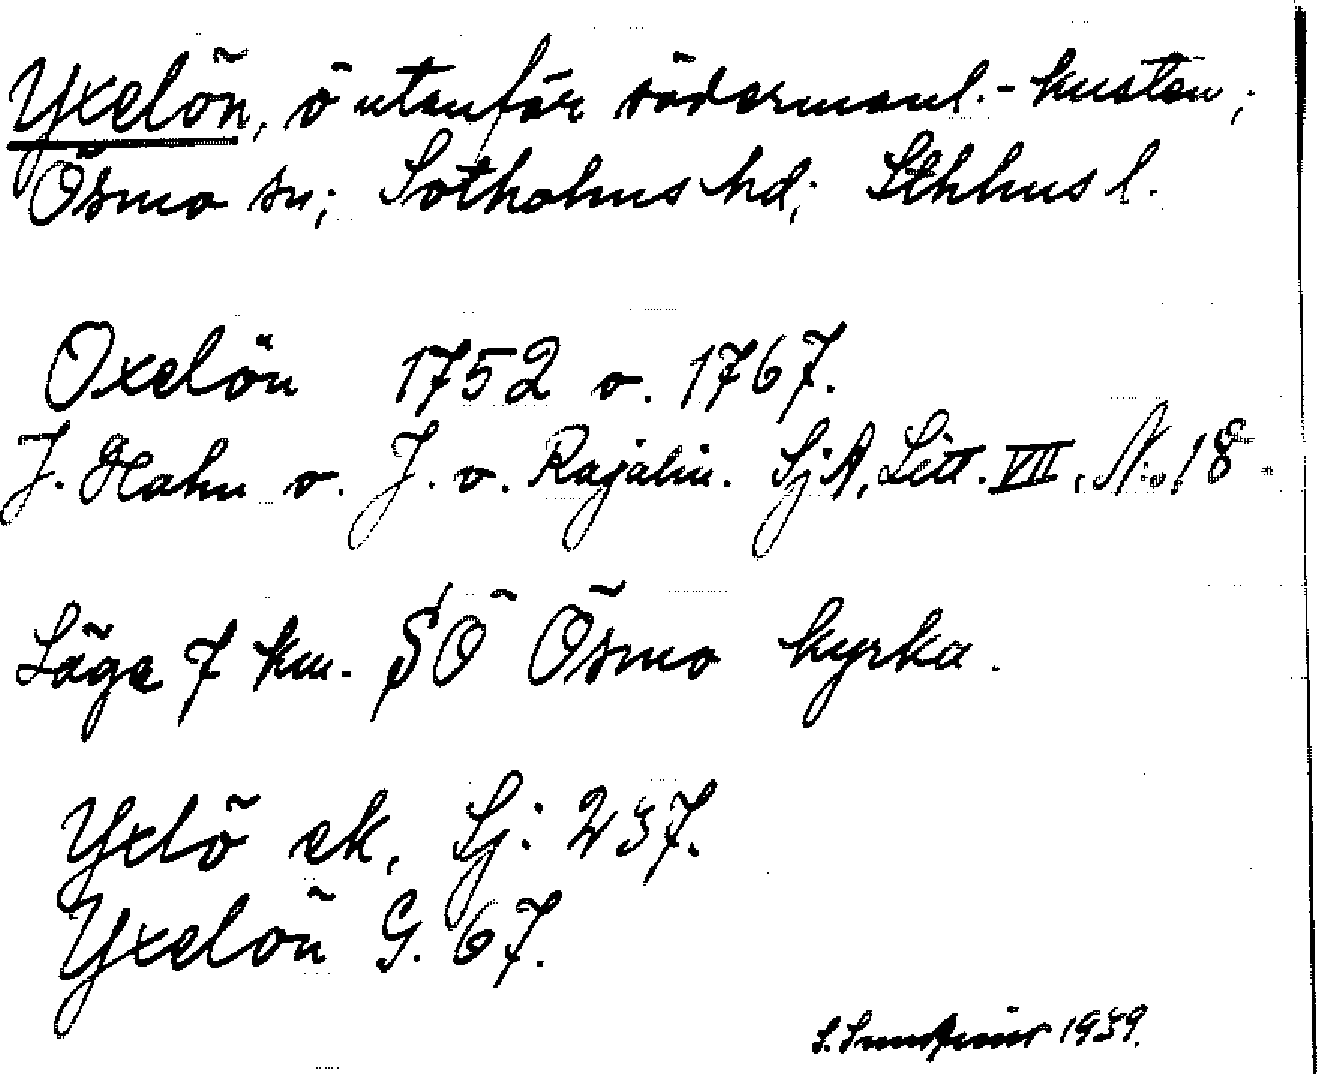 Yxelön, ö utanför södermanl.-kusten;
Ösmo sn; Sotholms hd; Sthlms l.
Oxelön 1752 o. 1767.
J. Hahn o. J. v. Rajalin. SjA, Litt. VII. No. 18.
Läge 7 km. SÖ Ösmo kyrka.
Yxlö ek. Sj: 237.
Yxelön G. 67.
1939.